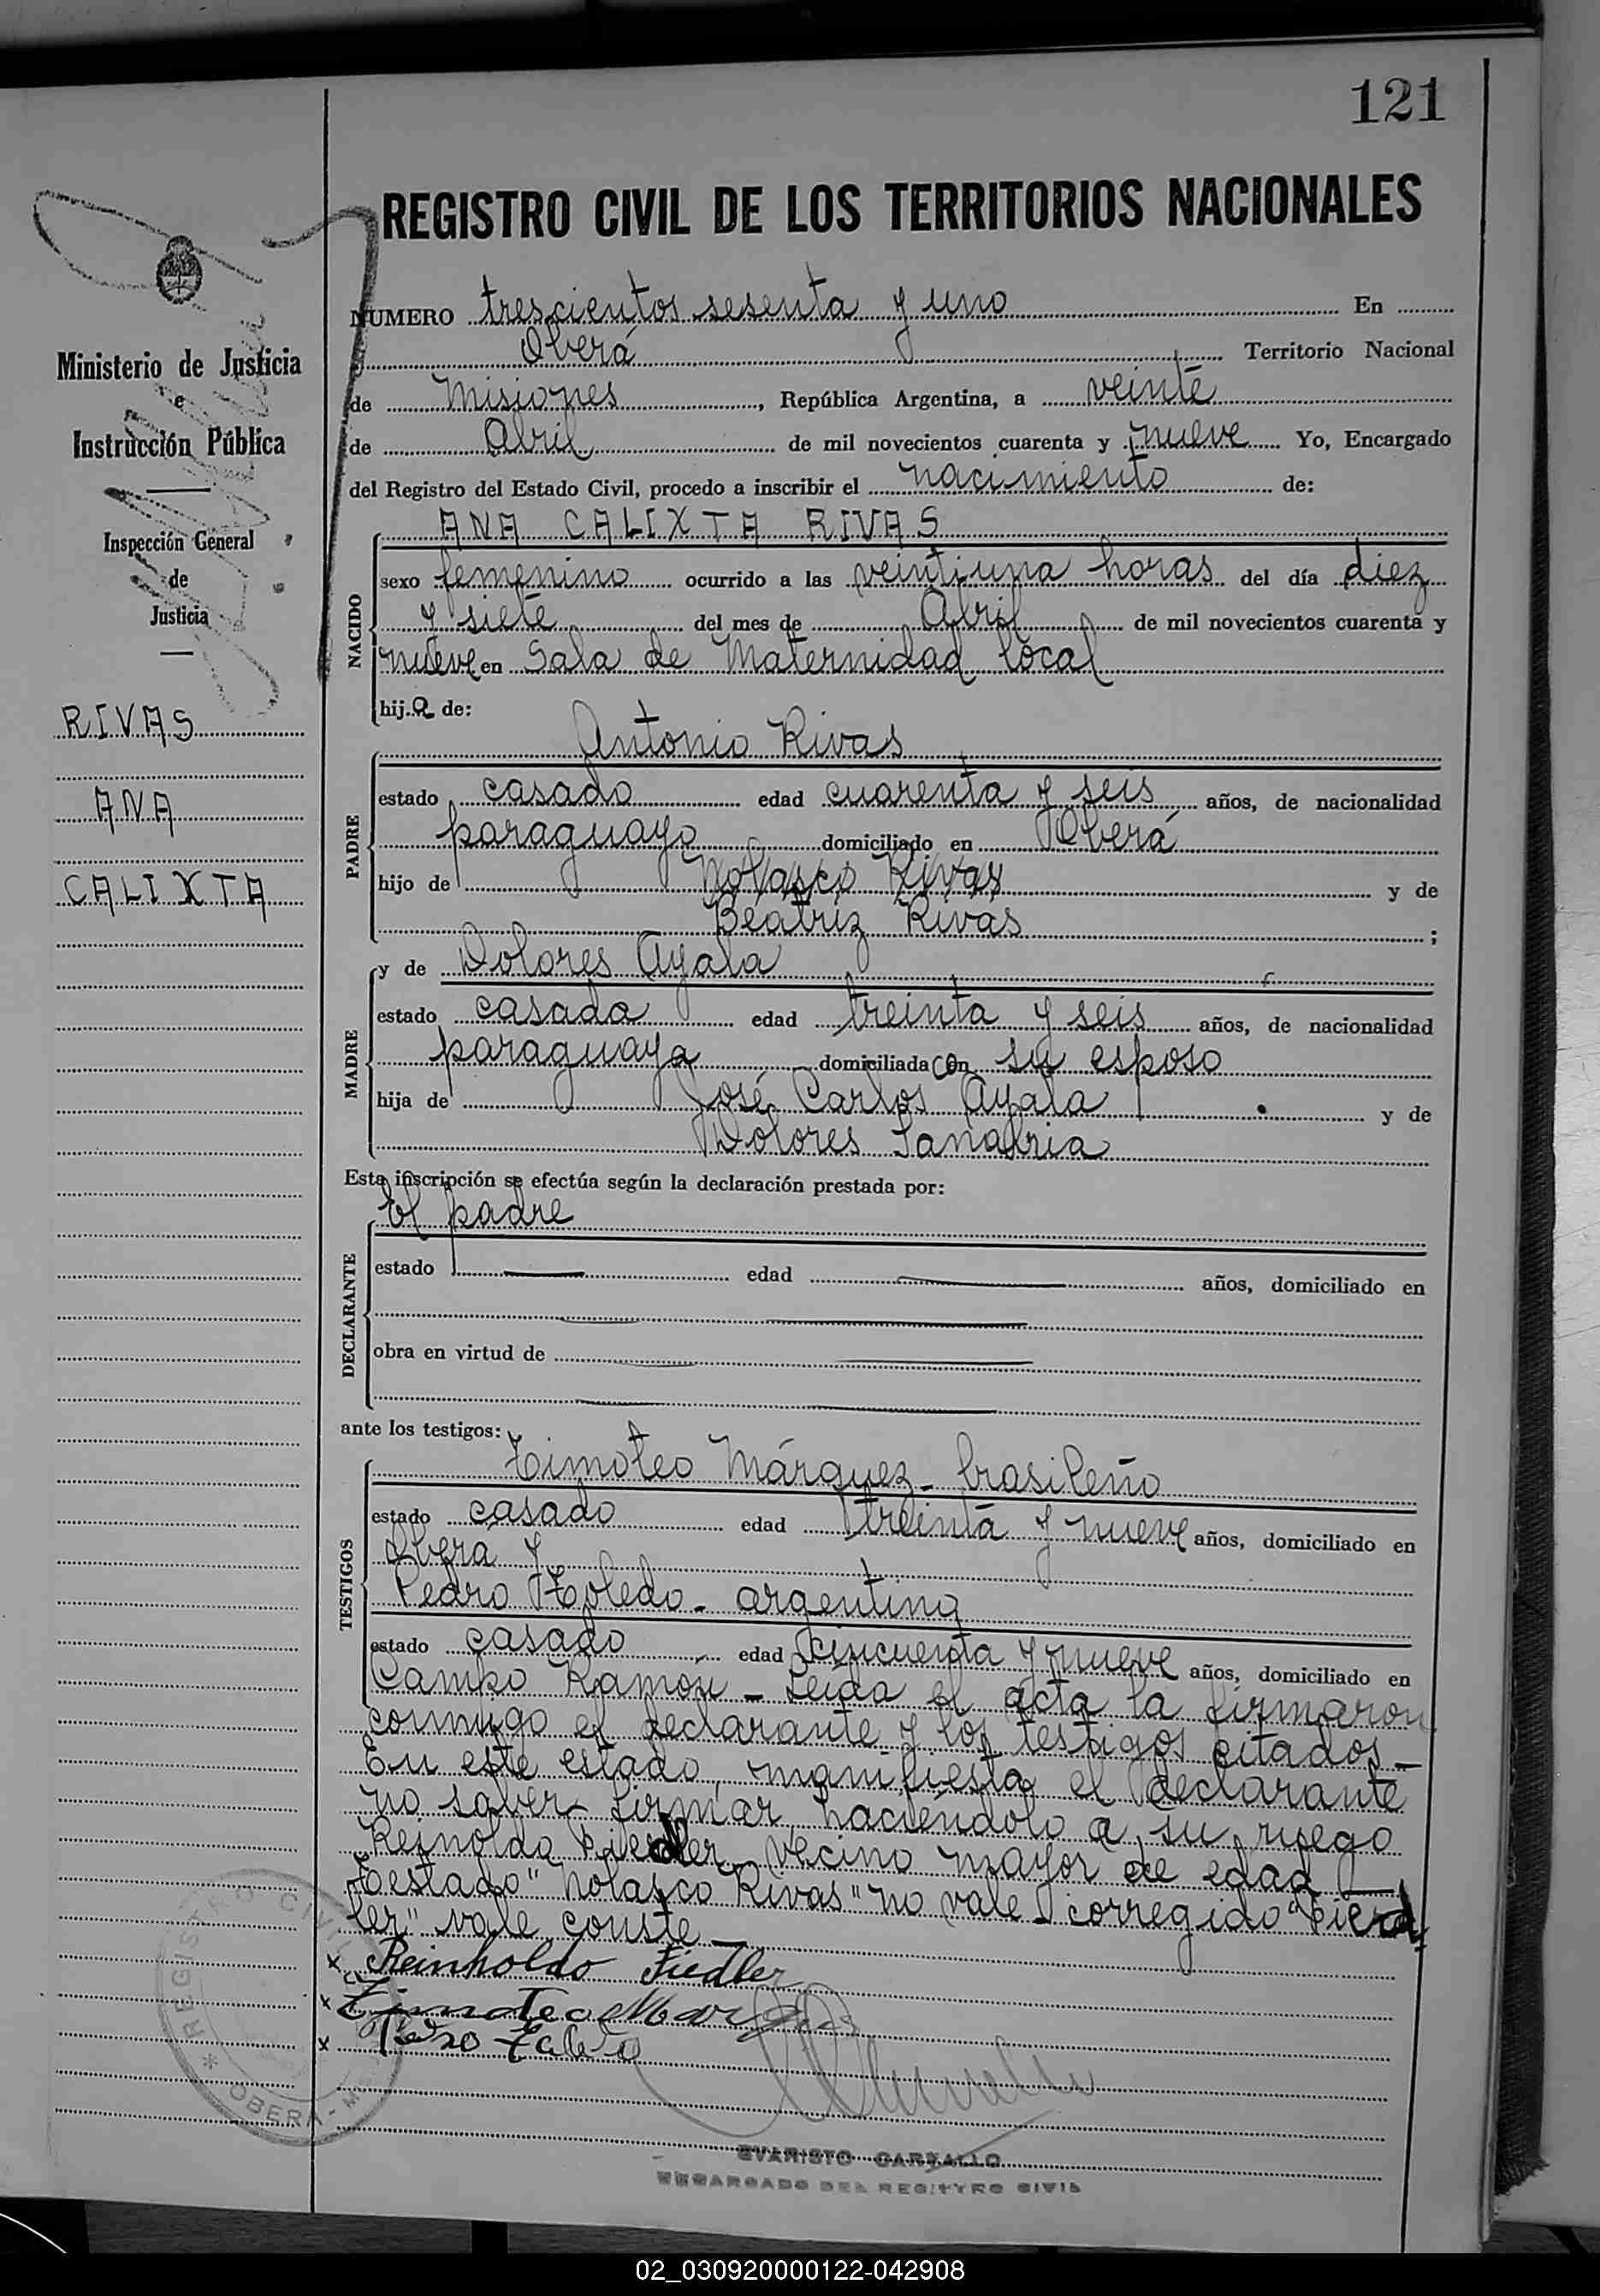 121
REGISTRO CIVIL DE LOS TERRITORIOS NACIONALES
Ministerio de Justicia
e
Instrucción Pública
Inspección General
de
Justicia
RIVAS
ANA
CALIXTA
NUMERO trescientos sesenta y uno En
Oberá Territorio Nacional
de Misiones, República Argentina, a veinte
de Abril de mil novecientos cuarenta y nueve Yo, Encargado
del Registro del Estado Civil, procedo a inscribir el nacimiento de:
NACIDO
ANA CALIXTA RIVAS
sexo femenino ocurrido a las veintiuna horas del día diez
y siete del mes de Abril de mil novecientos cuarenta y
nueve en Sala de Maternidad local
hija de:
PADRE
Antonio Rivas
estado casado edad cuarenta y seis años, de nacionalidad
paraguayo domiciliado en Oberá
hijo de Nolasco Rivas y de
Beatriz Rivas ;
MADRE
y de Dolores Ayala
estado casada edad treinta y seis años, de nacionalidad
paraguaya domiciliada con su esposo
hija de José Carlos Ayala y de
Dolores Sanabria
Esta inscripción se efectúa según la declaración prestada por:
DECLARANTE
El padre
estado edad años, domiciliado en
obra en virtud de
ante los testigos:
TESTIGOS
Timoteo Márquez - brasileño
estado casado edad treinta y nueve años, domiciliado en
Oberá y
Pedro Toledo - argentino
estado casado edad cincuenta y nueve años, domiciliado en
Campo Ramón - Leída el acta la firmaron
conmigo el declarante y los testigos citados -
En este estado, manifiesta el declarante
no saber firmar, haciéndolo a su ruego
Reinoldo Fiedler, vecino mayor de edad -
Testado "Nolasco Rivas" no vale - corregido "Fied
ler" vale conste -
x Reinholdo Fiedler
x Timoteo Marques
x Pedro Toledo
REGISTRO CIVIL
* OBERA -
EVARISTO CARBALLO
ENCARGADO DEL REGISTRO CIVIL
02_030920000122-042908